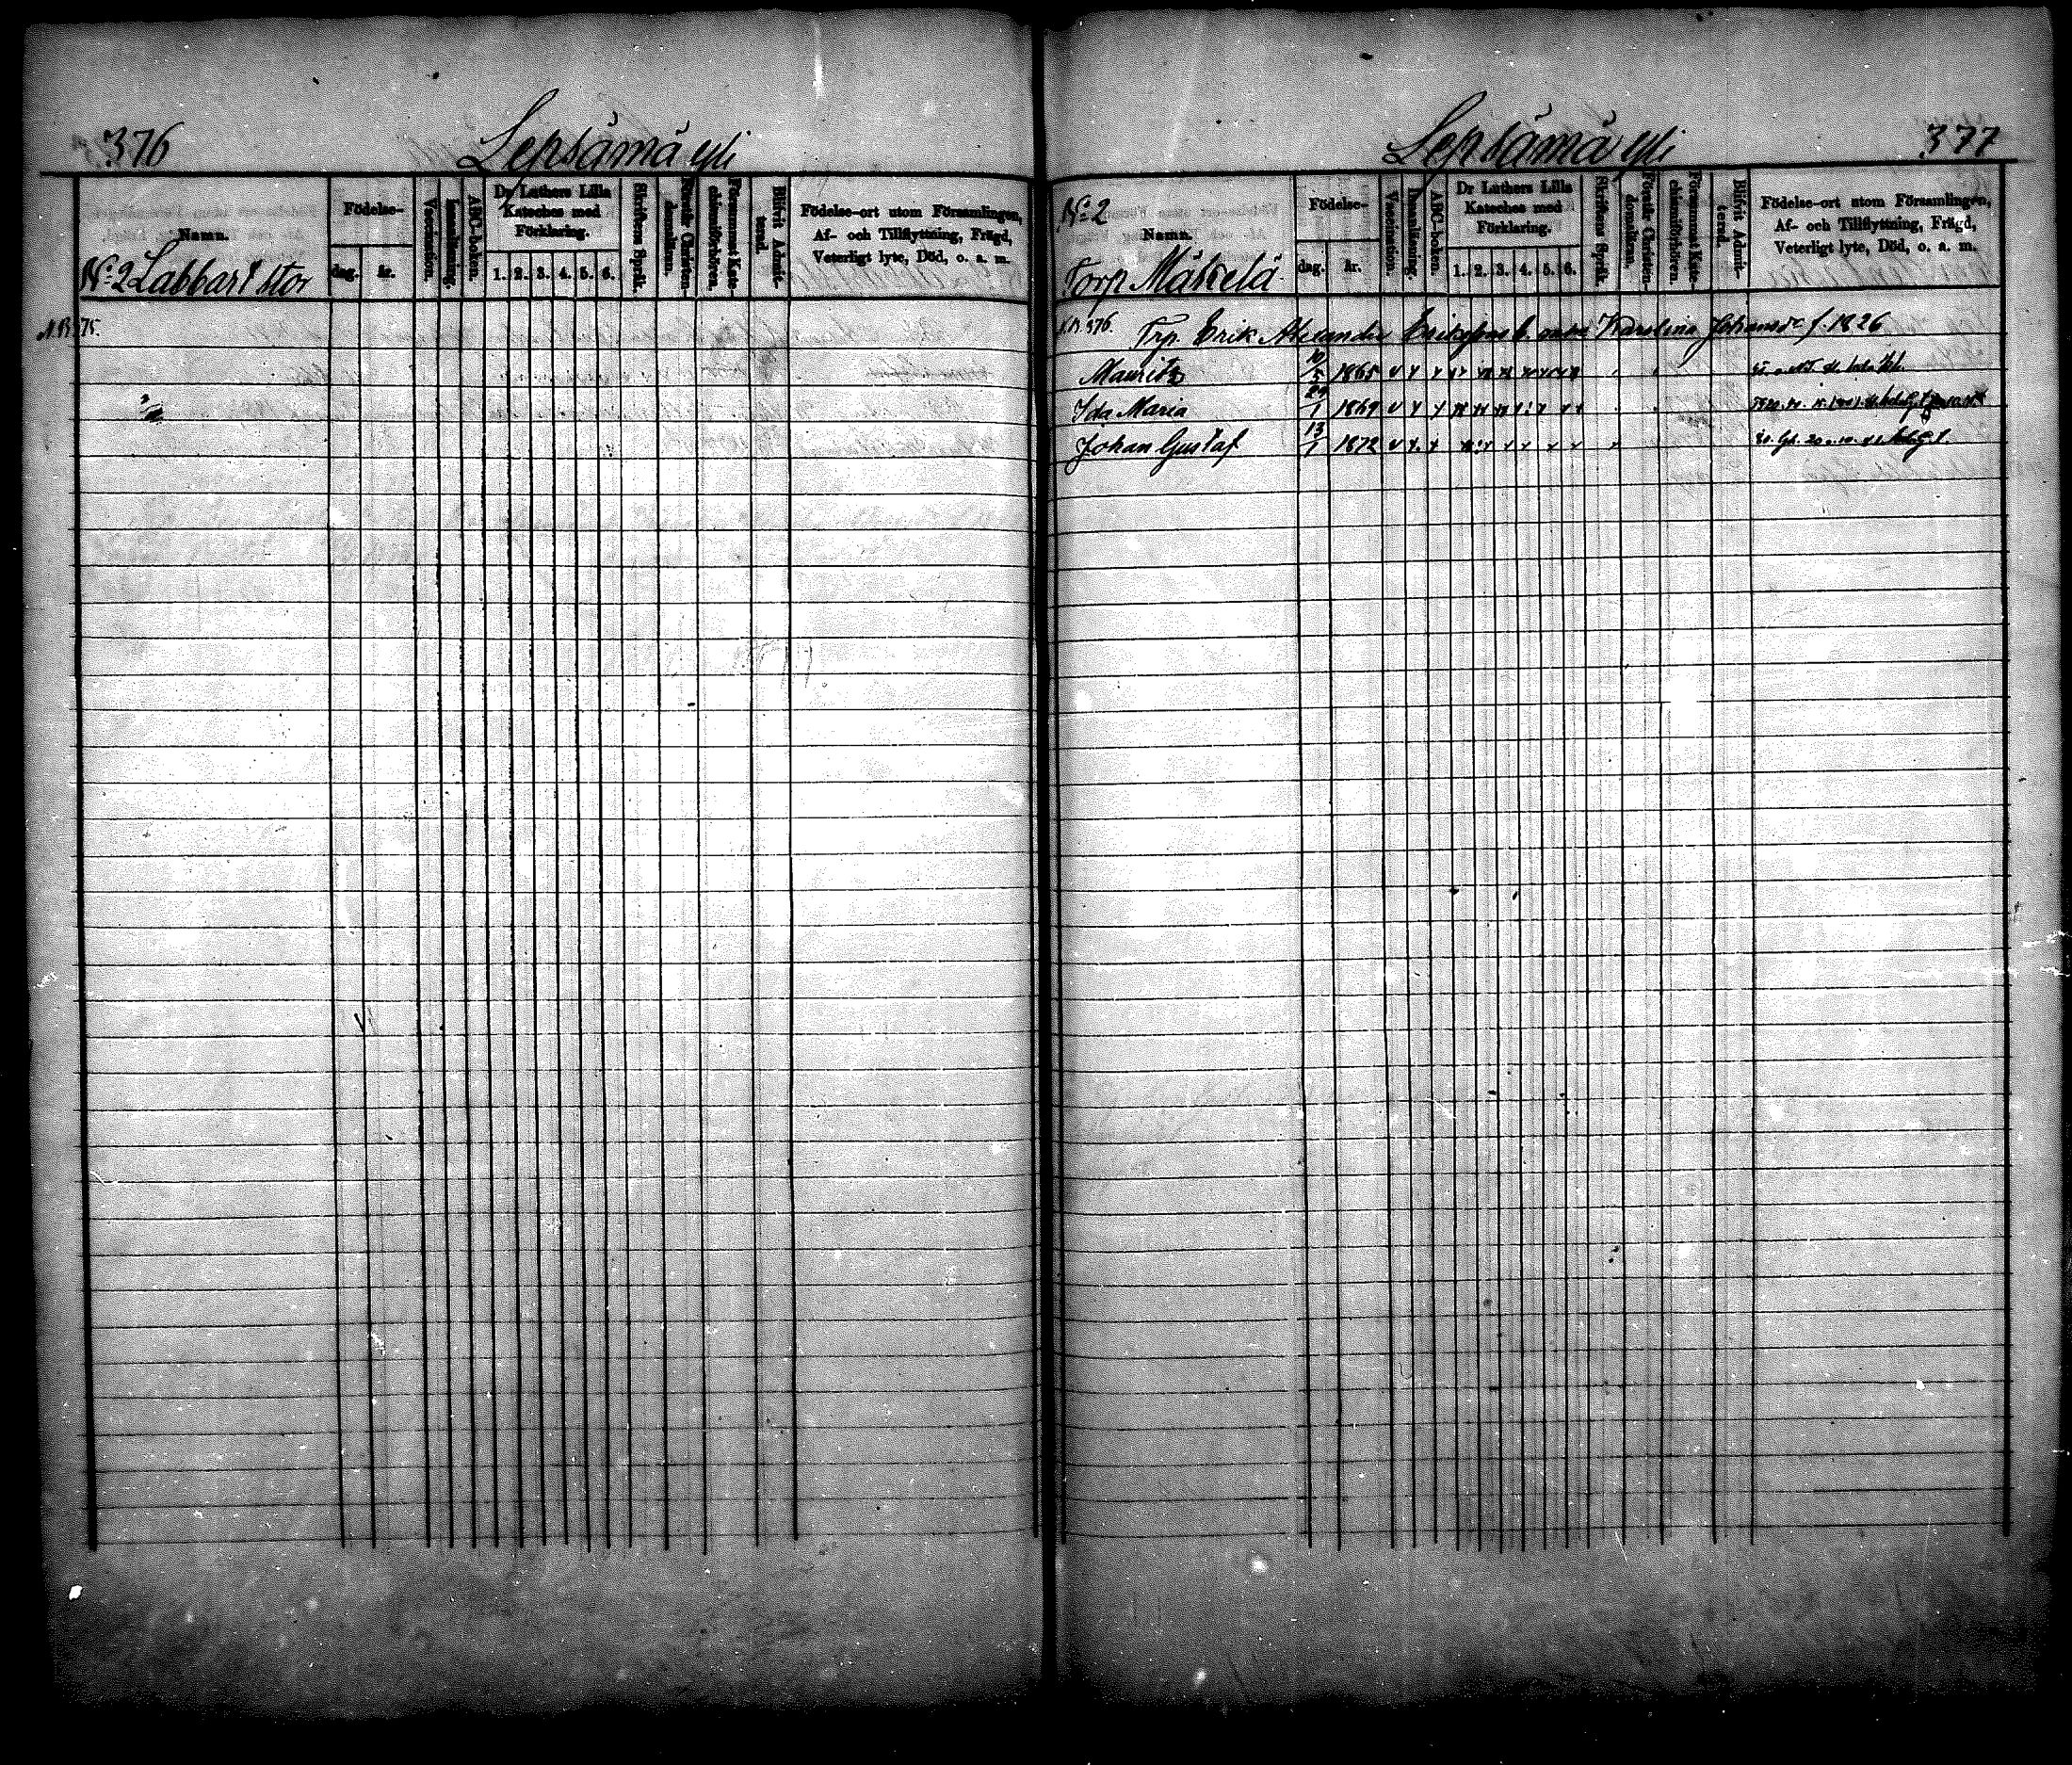 376
Lepsämä yli
Namn.
Födelse-
dag.
år.
Vaccination.
Innanläsning.
ABC-boken.
Dr Luthers Lilla
Kateches med
Förklaring.
1. 2. 3. 4. 5. 6.
Skriftens Språk.
Förstår Christen-
domslären.
Försummat Kate-
chismiförhören.
Blifvit Admit-
terad.
Födelse-ort utom Församlingen,
Af- och Tillflyttning, Frägd,
Veterligt lyte, Död, o. a. m.
No 2 Labbart stor
N.B. 75.
Lepsämä yli
377
No 2
Namn.
Torp Mäkelä
Födelse-
dag.
år.
Vaccination.
Innanläsning.
ABC-boken.
Dr Luthers Lilla
Kateches med
Förklaring.
1. 2. 3. 4. 5. 6.
Skriftens Språk.
Förstår Christen-
domslären.
Försummat Kate-
chismiförhören.
Blifvit Admit-
terad.
Födelse-ort utom Församlingen,
Af- och Tillflyttning, Frägd,
Veterligt lyte, Död, o. a. m.
N.B. 376. Trp. Erik Alexander Karolina Johansdr f. 1826
Mauritz 10/5 1865
Ida Maria 29/1 1869
Johan Gustaf 13/1 1872